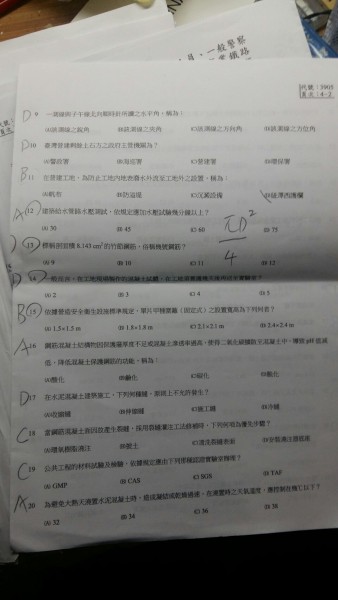 代號：3905
頁次：4-2
D 9 一測線與子午線北方向順時針所讀之水平角，稱為：
(A)該測線之銳角 (B)該測線之夾角 (C)該測線之方向角 (D)該測線之方位角
D 10 臺灣營建剩餘土石方之政府主管機關為？
(A)警政署 (B)海巡署 (C)營建署 (D)環保署
B 11 在營建工地，為防止工地內地表積水外流至工地外之設置，稱為：
(A)帆布 (B)防溢堤 (C)沉澱設備
A 12 建築給水管路水壓測試，依規定應加水壓試驗幾分鐘以上？
(A) 30 (B) 45 (C) 60 (D) 75
πD²
4
13 標稱剖面積 8.143 cm² 的竹節鋼筋，俗稱幾號鋼筋？
(A) 9 (B) 10 (C) 11 (D) 12
14
(A) 2 (B) 3 (C) 4 (D) 5
B 15 依據營造安全衛生設施標準規定，單片甲種圍籬（固定式）之設置寬高為下列何者？
(A) 1.5×1.5 m (B) 1.8×1.8 m (C) 2.1×2.1 m (D) 2.4×2.4 m
A 16 鋼筋混凝土結構物因保護層厚度不足或混凝土滲透率過高，使得二氧化碳擴散至混凝土中，導致 pH 值減
低，降低混凝土保護鋼筋的功能，稱為：
(A)酸化 (C)碳化
D 17 在水泥混凝土建築施工，下列何種縫，原則上不允許發生？
(A)收縮縫 (B)伸縮縫 (C)施工縫 (D)冷縫
C 18 當鋼筋混凝土面因故產生裂縫，採用裂縫灌注工法修補時，下列何項為優先步驟？
(A)環氧樹脂灌注 (B)敲土 (C)清洗裂縫表面
C 19 公共工程的材料試驗及檢驗，依據規定應由下列何種認證實驗室辦理？
(A) GMP (B) CAS (C) SGS (D) TAF
A 20 為避免大熱天澆置水泥混凝土時，造成凝結或乾燥過速，在澆置時之天氣溫度，應控制在幾℃以下？
(A) 32 (B) 34 (C) 36 (D) 38